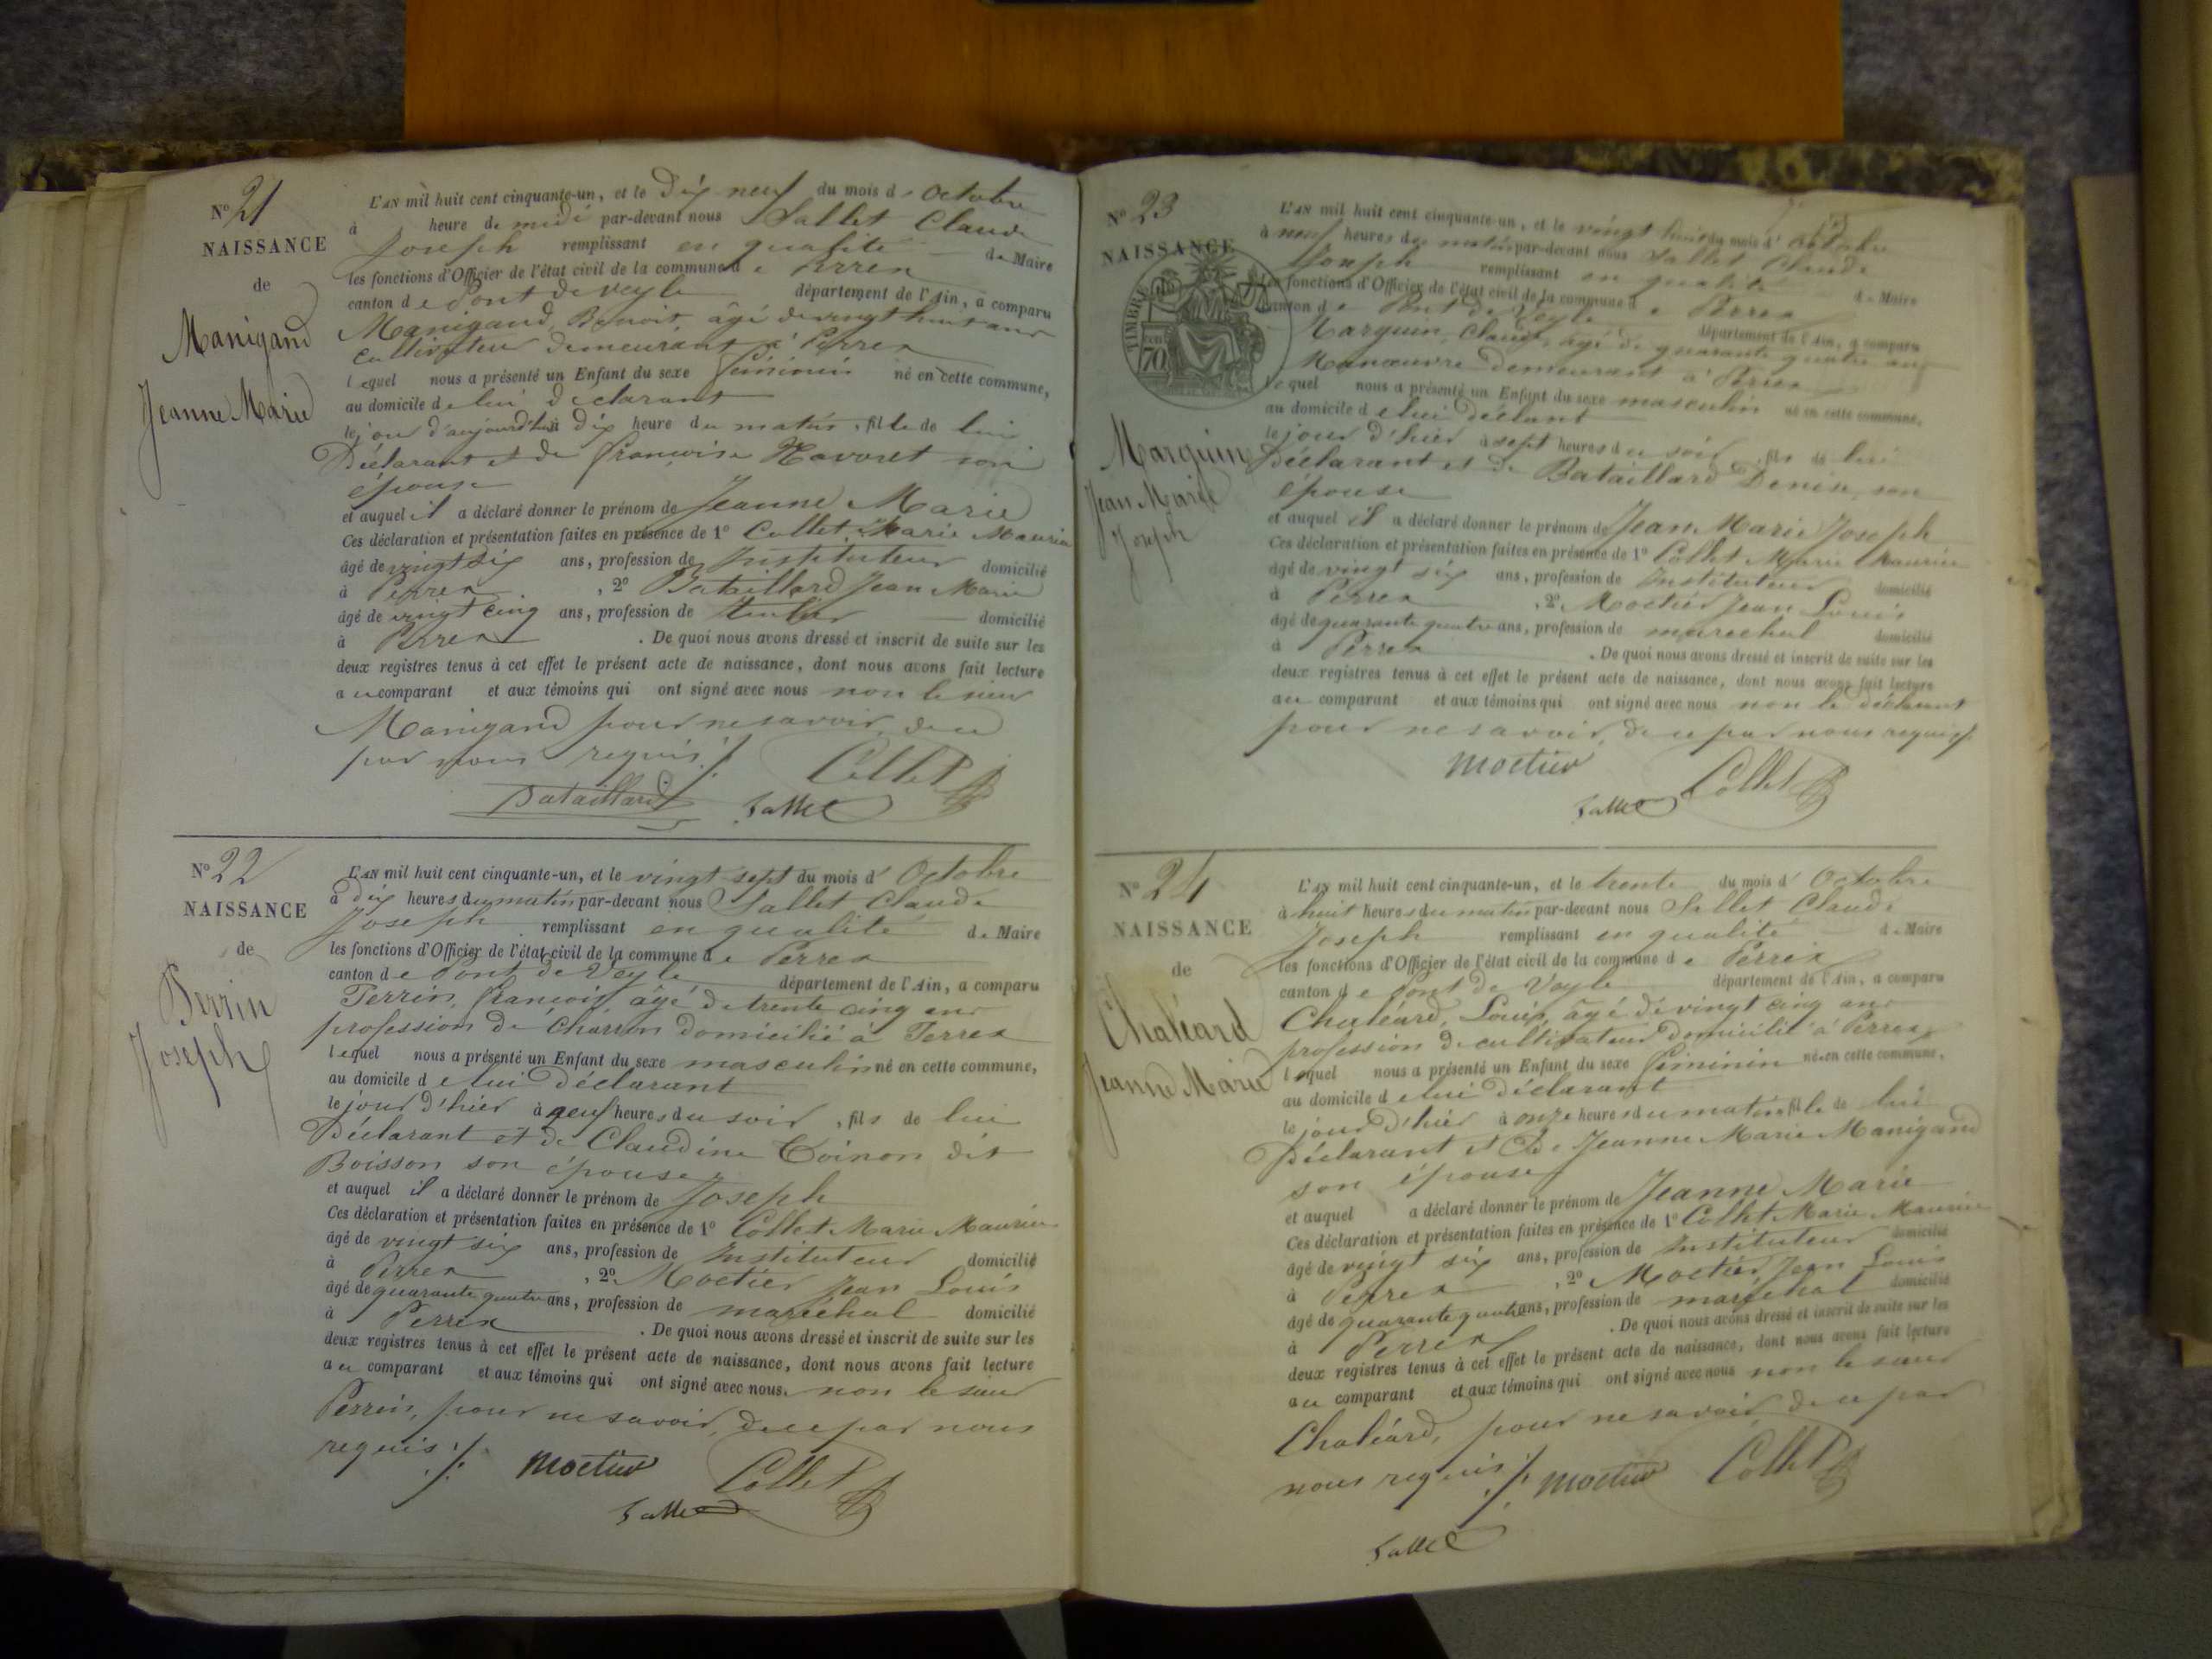 N° 21
NAISSANCE
de
Manigand
Jeanne Marie
L'AN mil huit cent cinquante-un, et le Dix neuf du mois d' Octobre
à heure de midi par-devant nous Sallet Claude
Joseph remplissant en qualité de Maire
les fonctions d'Officier de l'état civil de la commune de Perrex
canton de Pont de Veyle département de l'Ain, a comparu
Manigand, Benoit, âgé de vingt huit ans
Cultivateur demeurant à Perrex
lequel nous a présenté un Enfant du sexe féminin né en cette commune,
au domicile de lui déclarant
le jour d'aujourd'hui à Dix heure du matin, fille de lui
Déclarant et de françoise son
épouse
et auquel il a déclaré donner le prénom de Jeanne Marie
Ces déclaration et présentation faites en présence de 1° Collet, Marie Maurice
âgé de vingt six ans, profession de Instituteur domicilié
à Perrex, 2° Bataillard Jean Marie
âgé de vingt cinq ans, profession de domicilié
à Perrex. De quoi nous avons dressé et inscrit de suite sur les
deux registres tenus à cet effet le présent acte de naissance, dont nous avons fait lecture
au comparant et aux témoins qui ont signé avec nous non le sieur
Manigand pour ne savoir, de ce
par nous requis ./.
Collet
Bataillard Sallet
N° 22
NAISSANCE
de
Perrin
Joseph
L'AN mil huit cent cinquante-un, et le vingt sept du mois d' Octobre
à dix heures du matin par-devant nous Sallet Claude
Joseph remplissant en qualité de Maire
les fonctions d'Officier de l'état civil de la commune de Perrex
canton de Pont de Veyle département de l'Ain, a comparu
Perrin, françois âgé de trente cinq ans
profession de Charron domicilié à Perrex
lequel nous a présenté un Enfant du sexe masculin né en cette commune,
au domicile de lui déclarant
le jour d'hier à neuf heures du soir, fils de lui
Déclarant et de Claudine Toinon dit
Boisson son épouse
et auquel il a déclaré donner le prénom de Joseph
Ces déclaration et présentation faites en présence de 1° Collet Marie Maurice
âgé de vingt six ans, profession de Instituteur domicilié
à Perrex, 2° Moctier Jean Louis
âgé de quarante quatre ans, profession de maréchal domicilié
à Perrex. De quoi nous avons dressé et inscrit de suite sur les
deux registres tenus à cet effet le présent acte de naissance, dont nous avons fait lecture
au comparant et aux témoins qui ont signé avec nous, non le sieur
Perrin, pour ne savoir, de ce par nous
requis ./. Moctier Collet
Sallet
N° 23
NAISSANCE
TIMBRE
70
Marguin
Jean Marie
Joseph
L'AN mil huit cent cinquante-un, et le vingt huit du mois d' Octobre
à neuf heures du matin par-devant nous Sallet Claude
Joseph remplissant en qualité de Maire
les fonctions d'Officier de l'état civil de la commune de Perrex
canton de Pont de Veyle département de l'Ain, a comparu
Marguin, Claude, âgé de quarante quatre ans
Manoeuvre demeurant à Perrex
lequel nous a présenté un Enfant du sexe masculin né en cette commune,
au domicile de lui déclant
le jour d'hier à sept heures du soir, fils de lui
Déclarant et de Bataillard Denise, son
épouse
et auquel il a déclaré donner le prénom de Jean Marie Joseph
Ces déclaration et présentation faites en présence de 1° Collet Marie Maurice
âgé de vingt six ans, profession de Instituteur domicilié
à Perrex, 2° Moctier Jean Louis
âgé de quarante quatre ans, profession de maréchal domicilié
à Perrex. De quoi nous avons dressé et inscrit de suite sur les
deux registres tenus à cet effet le présent acte de naissance, dont nous avons fait lecture
au comparant et aux témoins qui ont signé avec nous non le déclarant
pour ne savoir, de ce par nous requis ./.
Moctier
Sallet Collet
N° 24
NAISSANCE
de
Chaléard
Jeanne Marie
L'AN mil huit cent cinquante-un, et le trente du mois d' Octobre
à huit heures du matin par-devant nous Sallet Claude
Joseph remplissant en qualité de Maire
les fonctions d'Officier de l'état civil de la commune de Perrex
canton de Pont de Veyle département de l'Ain, a comparu
Chaléard, Louis, âgé de vingt cinq ans
profession de cultivateur domicilié à Perrex
lequel nous a présenté un Enfant du sexe féminin né en cette commune,
au domicile de lui déclarant
le jour d'hier à onze heures du matin, fille de lui
Déclarant et De Jeanne Marie Manigand
son épouse
et auquel a déclaré donner le prénom de Jeanne Marie
Ces déclaration et présentation faites en présence de 1° Collet Marie Maurice
âgé de vingt six ans, profession de Instituteur domicilié
à Perrex, 2° Moctier Jean Louis
âgé de quarante quatre ans, profession de maréchal domicilié
à Perrex. De quoi nous avons dressé et inscrit de suite sur les
deux registres tenus à cet effet le présent acte de naissance, dont nous avons fait lecture
au comparant et aux témoins qui ont signé avec nous non le sieur
Chaléard, pour ne savoir, de ce par
nous requis ./. Moctier Collet
Sallet